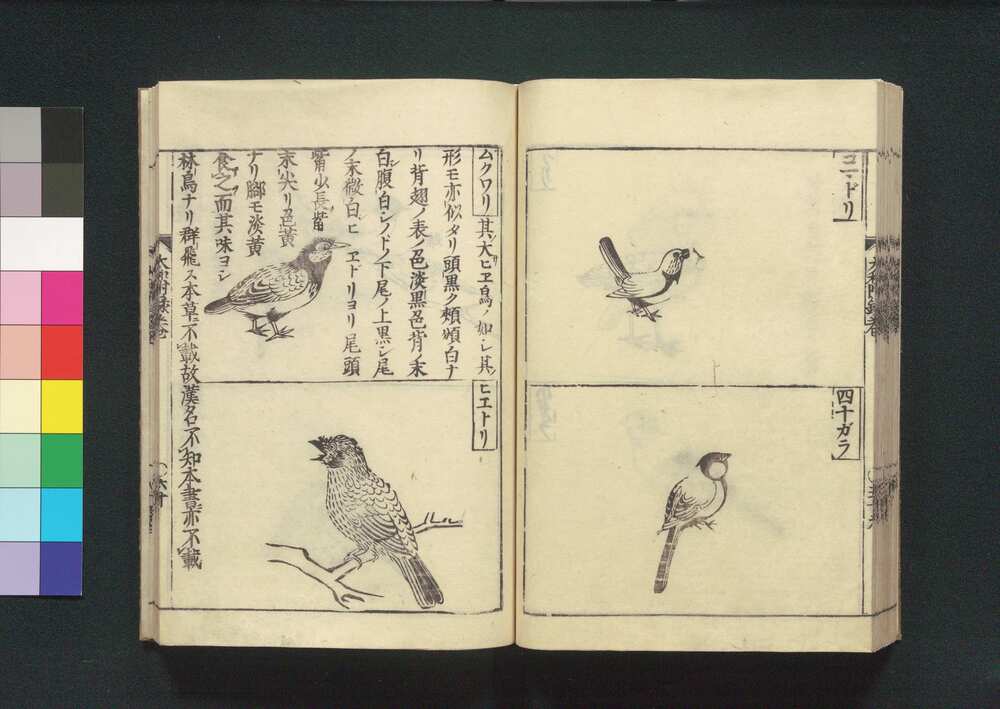 コニドリ
四十ガラ
ムクワリ 其大ヒヱ鳥ノ如シ其
形モ亦似タリ頭黒ク頬頷白ナ
リ背翅ノ表ノ色淡黒色背ノ末
白腹白シノドノ下尾ノ上黒シ尾
ノ末微白ヒヱドリヨリ尾頭
觜少長觜
末尖リ色黄
ナリ脚モ淡黄
食之而其味ヨシ
林鳥ナリ群飛ス本草不載故漢名不知本書亦不載
ヒエトリ